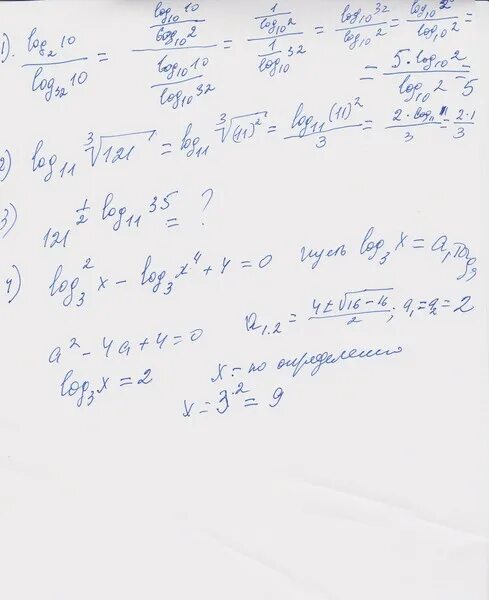 1). log₂10 / log₃₂10 = (log₁₀10 / log₁₀2) / (log₁₀10 / log₁₀32) = (1 / log₁₀2) / (1 / log₁₀32) = log₁₀32 / log₁₀2 = log₁₀2⁵ / log₁₀2 =
= 5·log₁₀2 / log₁₀2 = 5
2) log₁₁∛121 = log₁₁∛(11)² = log₁₁(11)² / 3 = 2·log₁₁11 / 3 = 2·1 / 3
3) 121^(½ log₁₁35) = ?
4) log₃²x − log₃x⁴ + 4 = 0 пусть log₃x = a, тогда
a² − 4a + 4 = 0 a₁.₂ = (4 ± √16−16) / 2 ; a₁ = a₂ = 2
log₃x = 2 x = по определению
x = 3² = 9